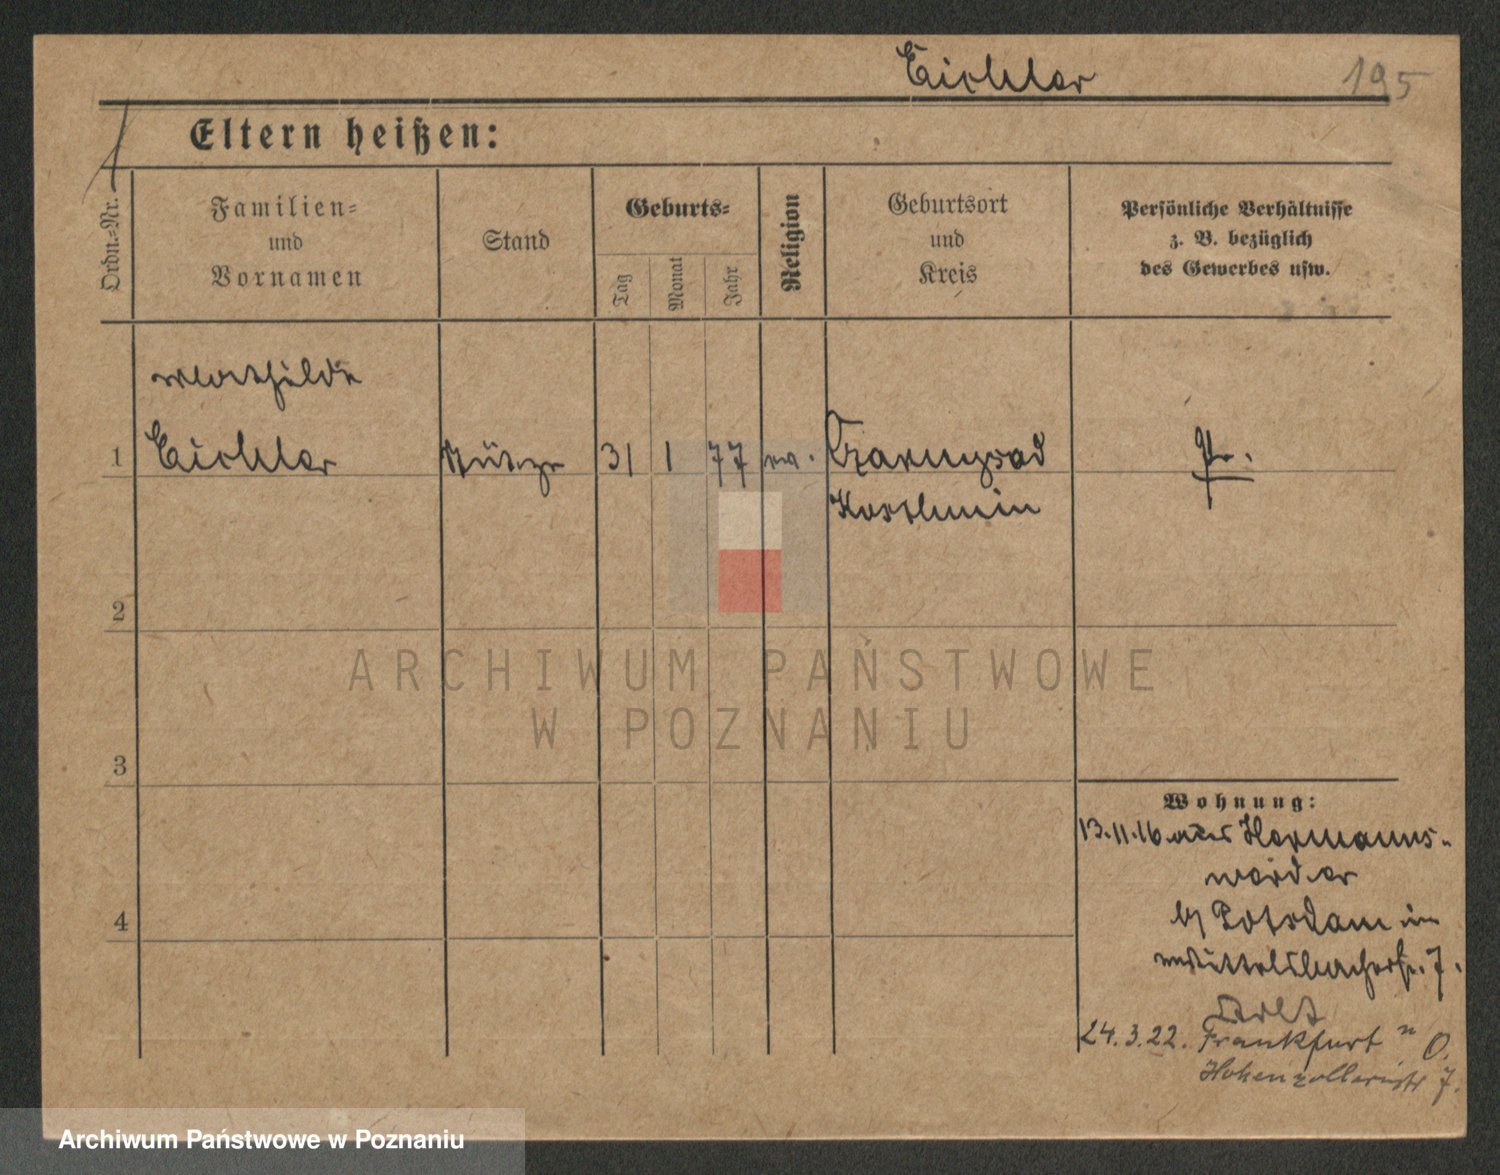 Eichler 195
Eltern heißen:
Ordn.=Nr.
Familien=
und
Vornamen
Stand
Geburts=
Tag
Monat
Jahr
Religion
Geburtsort
und
Kreis
Persönliche Verhältnisse
z. B. bezüglich
des Gewerbes usw.
Mathilde
1 Eichler Stütze 31 1 77 ev. Czarnysad Pr.
Koschmin
2
3
4
Wohnung:
13.11.16 aus Hermanns-
werder
b/ Potsdam in
Wittelsbacherstr. 7.
24.3.22. Frankfurt n O.
Hohenzollernstr 7.
ARCHIWUM PAŃSTWOWE
W POZNANIU
Archiwum Państwowe w Poznaniu